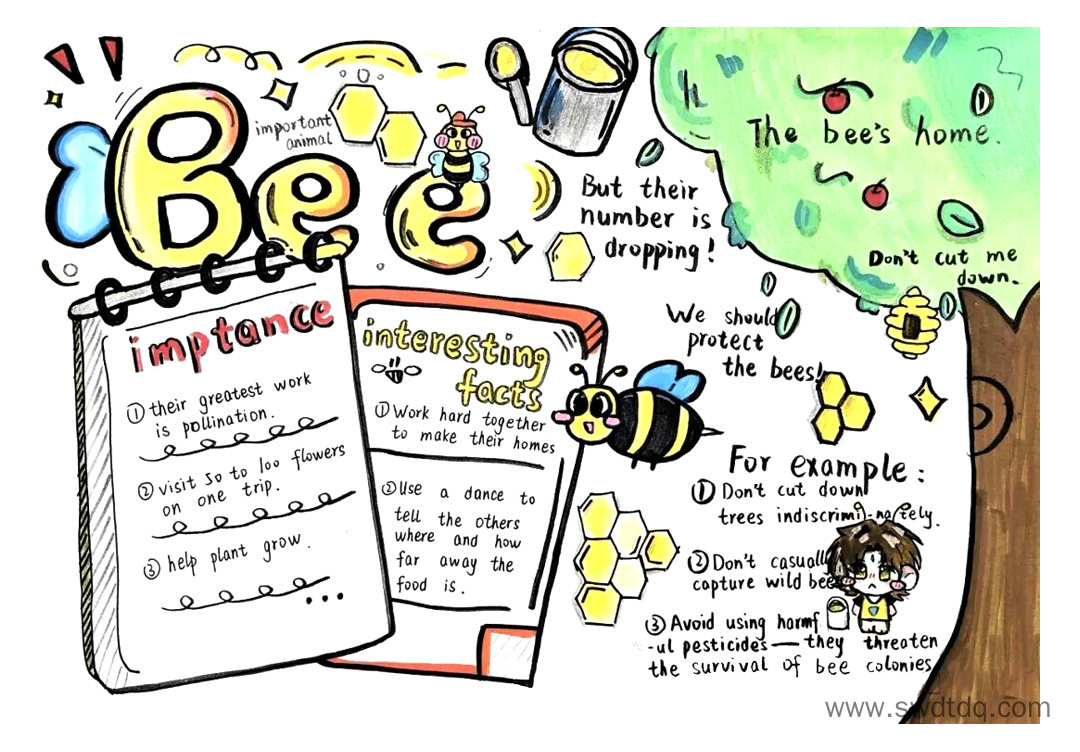 Bee
important
animal
But their
number is
dropping!
The bee's home.
Don't cut me
down.
We should
protect
the bees!
imptance
① their greatest work
is pollination.
② visit 50 to 100 flowers
on one trip.
③ help plant grow.
...
interesting
facts
① Work hard together
to make their homes
② Use a dance to
tell the others
where and how
far away the
food is.
For example:
① Don't cut down
trees indiscrimi-nately.
② Don't casually
capture wild bee
③ Avoid using harmf
-ul pesticides — they threaten
the survival of bee colonies
www.swdtdq.com